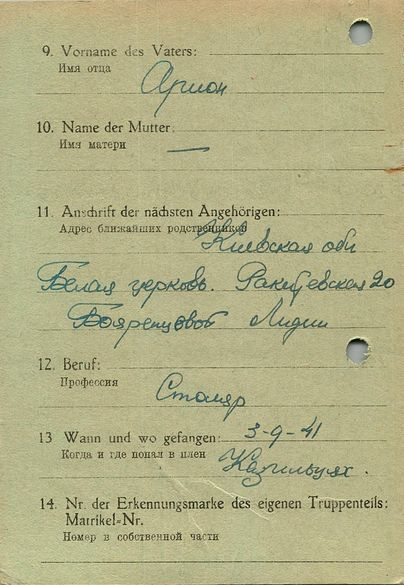 9. Vorname des Vaters:
Имя отца
Арион
10. Name der Mutter:
Имя матери
—
11. Anschrift der nächsten Angehörigen:
Адрес ближайших родственников
Киевская обл
Белая церковь. Ракитевская 20
Бояренцовой Лидии
12. Beruf:
Профессия
Столяр
13 Wann und wo gefangen: 3-9-41
Когда и где попал в плен
14. Nr. der Erkennungsmarke des eigenen Truppenteils:
Matrikel-Nr.
Номер в собственной части